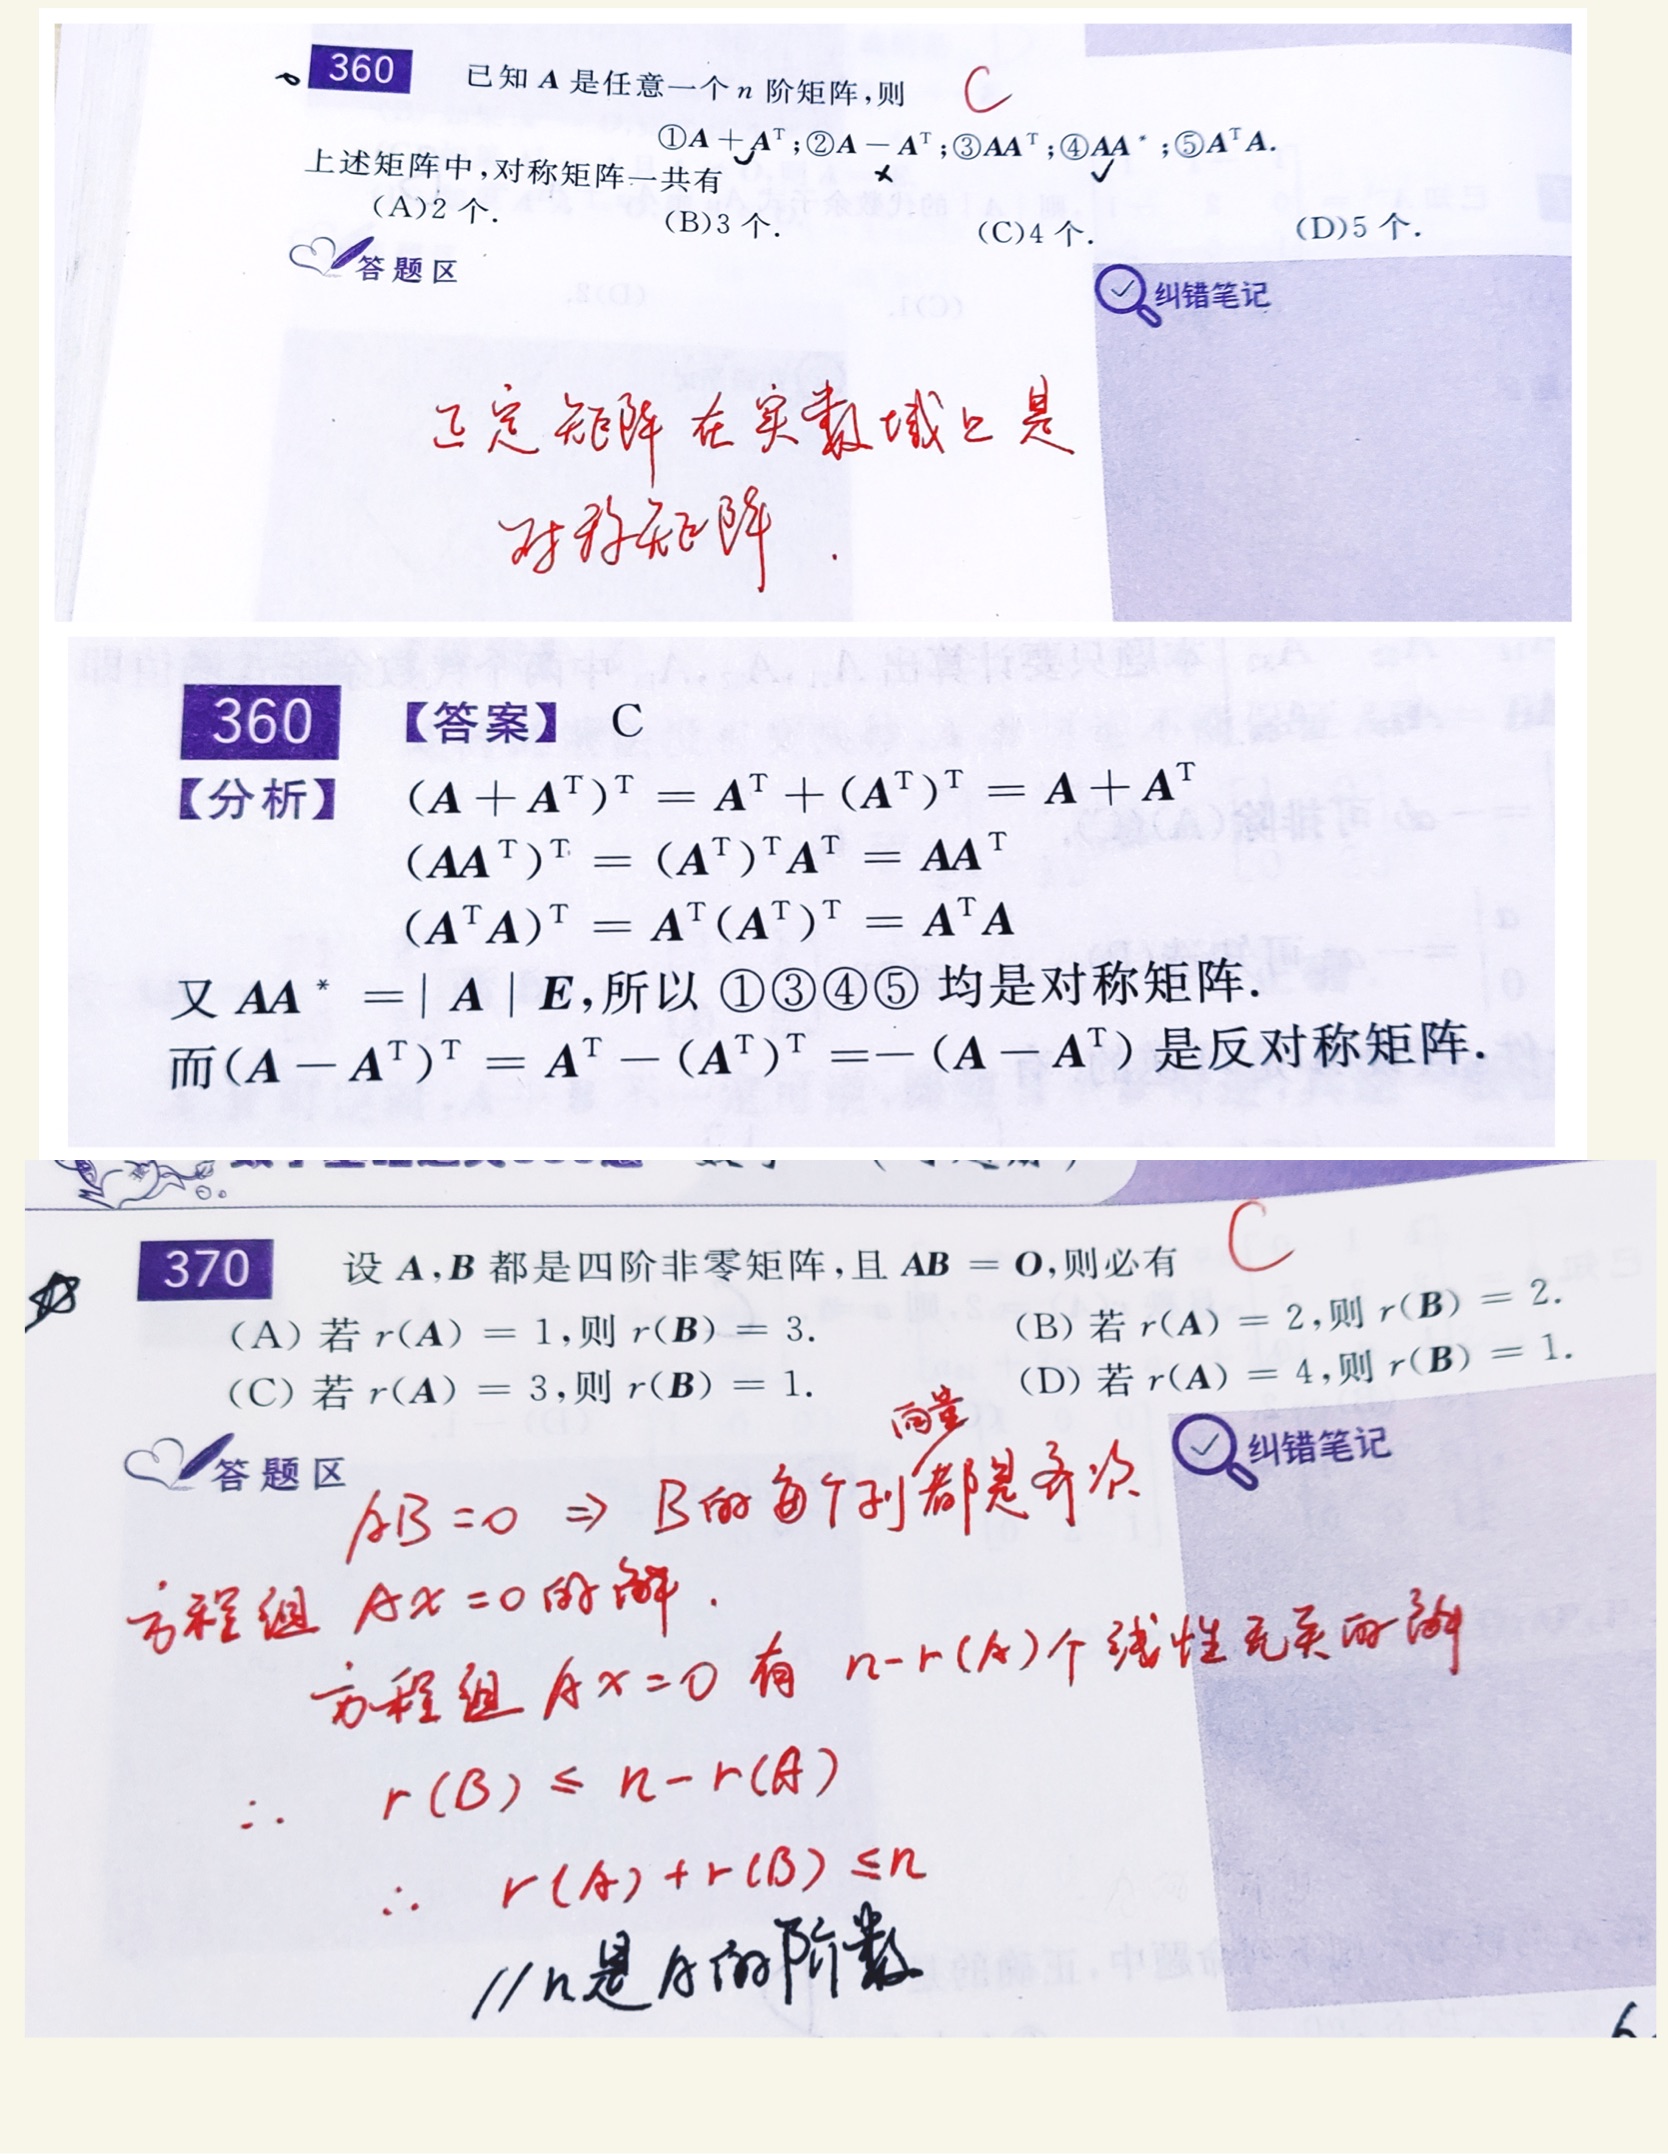 360 已知 A 是任意一个 n 阶矩阵,则 C
①A + Aᵀ;②A − Aᵀ;③AAᵀ;④AA*;⑤AᵀA.
上述矩阵中,对称矩阵一共有
(A)2 个. (B)3 个. (C)4 个. (D)5 个.
答题区
纠错笔记
正定矩阵在实数域上是
对称矩阵.
360 【答案】 C
【分析】 (A + Aᵀ)ᵀ = Aᵀ + (Aᵀ)ᵀ = A + Aᵀ
(AAᵀ)ᵀ = (Aᵀ)ᵀAᵀ = AAᵀ
(AᵀA)ᵀ = Aᵀ(Aᵀ)ᵀ = AᵀA
又 AA* = | A | E,所以 ①③④⑤ 均是对称矩阵.
而(A − Aᵀ)ᵀ = Aᵀ − (Aᵀ)ᵀ = − (A − Aᵀ) 是反对称矩阵.
370 设 A,B 都是四阶非零矩阵,且 AB = O,则必有 C
(A) 若 r(A) = 1,则 r(B) = 3. (B) 若 r(A) = 2,则 r(B) = 2.
(C) 若 r(A) = 3,则 r(B) = 1. (D) 若 r(A) = 4,则 r(B) = 1.
答题区
纠错笔记
向量
AB=0 ⇒ B的每个列都是齐次
方程组 Ax=0的解.
方程组 Ax=0 有 n-r(A)个线性无关的解
∴ r(B) ≤ n-r(A)
∴ r(A)+r(B) ≤n
//n是A的阶数